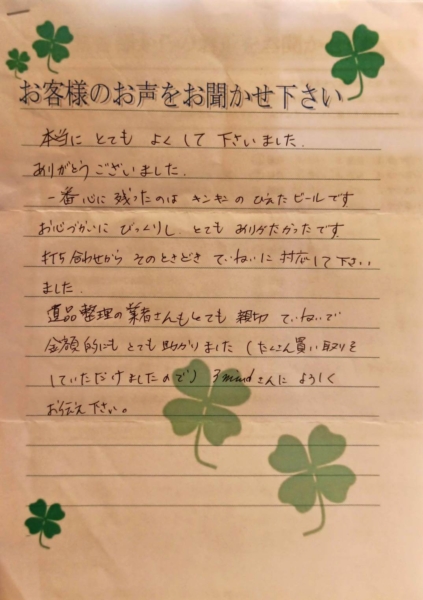 お客様のお声をお聞かせ下さい
本当に とても よくして 下さいました.
ありがとうございました.
一番心に残ったのは キンキンの ひえたビールです
お心づかいに びっくりし. とても ありがたかったです.
打ち合わせから そのときどき ていねいに 対応して下さい
ました.
遺品整理の業者さんもとても 親切 ていねいで
金額的にも とても 助かりました (たくさん買い取りを
していただけましたので) さんに よろしく
お伝え下さい。